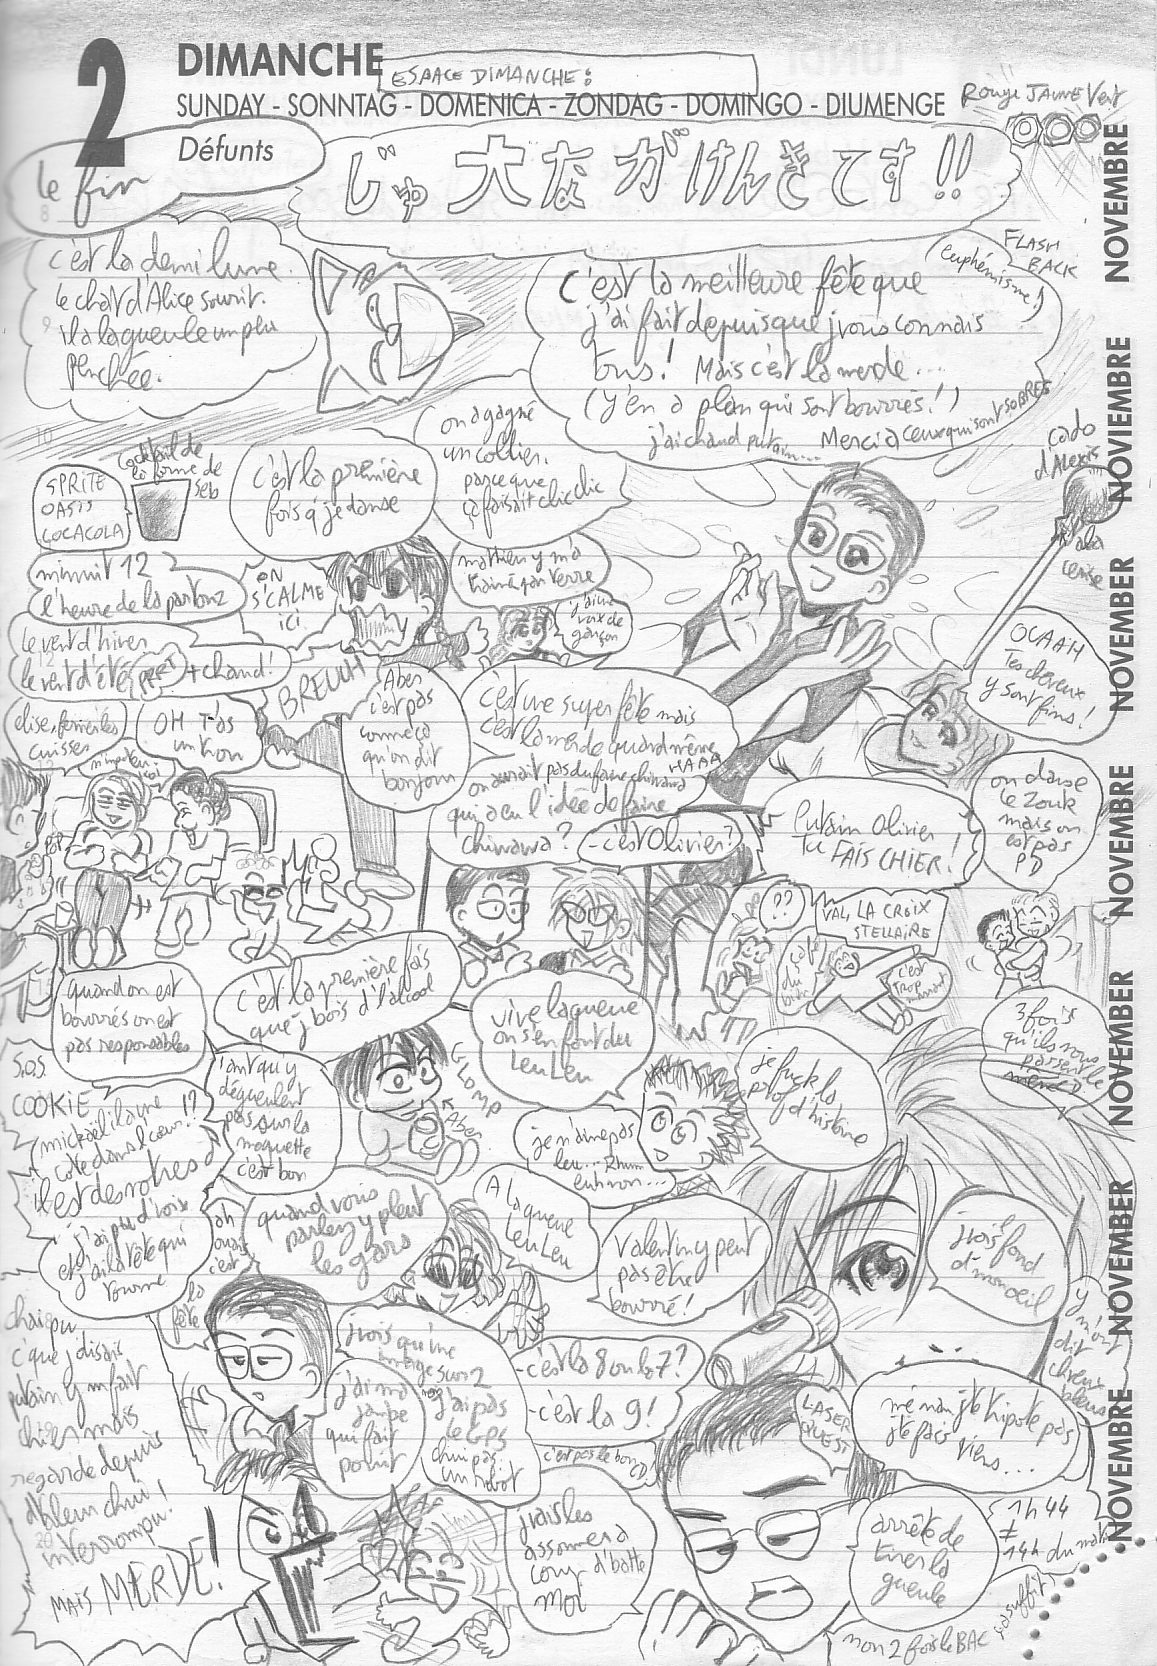 2
DIMANCHE
ESPACE DIMANCHE:
SUNDAY - SONNTAG - DOMENICA - ZONDAG - DOMINGO - DIUMENGE
Défunts
Rouge JAUNE Vert
le fin
じゅ 大 な が けんき てす !!
NOVEMBRE NOVIEMBRE NOVEMBER NOVEMBER NOVEMBRE NOVEMBER NOVEMBER NOVEMBRE
FLASH
BACK
(euphémisme!)
c'est la demi lune.
le chat d'Alice sourit.
il a la gueule un peu
penchée.
C'est la meilleure fête que
j'ai fait depuis que j'vous connais
tous! Mais c'est la merde...
(y'en a plein qui sont bourrés!)
j'ai chaud putain... Merci à ceux qui sont SOBRES
cado
d'Alexis
à la
cerise
SPRITE
OASIS
COCACOLA
cocktail de
la forme de
seb
c'est la première
fois q' je danse
on a gagné
un collier.
parce que
ça faisait chic chic
minuit 12
l'heure de la partouz
ON
S'CALME
ici.
mathieu y m'a
trainé par terre
y'a une
voix de
garçon
le vent d'hiver
le vent d'été
PRRT
+ chaud!
BREUUH
OUAAH
Tes cheveux
y sont fins!
elise, ferme les
cuisses
OH T'AS
un tron
Aber
c'est pas
comme ça
qu'on dit
bonjour
c'est une super fête mais
c'est la merde quand même
HAAA
on aurait pas du faire chiwawa
qui a eu l'idée de faire
chiwawa?
- c'est Olivier?
Putain Olivier
tu FAIS CHIER!
on danse
le Zouk
mais on
est pas
PD
??
VAL, LA CROIX
STELLAIRE
c'est
trop
marrant
quand on est
bourrés on est
pas responsables
c'est la première fois
que j'bois d'l'alcool
vive la queue
on s'en fout du
Leu Leu
3 fois
qu'ils nous
passent le
même CD
je fuck la
prof d'histoire
S.O.S.
COOKIE
mickaël il a une
cote dans l'coeur!?
il est des notres
tant qu'y
dégueulent
pas sur la
moquette
c'est bon
GLOMP
Aber
je n'aime pas
leu... Rhum
euh non...
j'ai pu d'voix
et j'ai la tête qui
tourne
ah
ouais
c'est
la
fête
quand vous
parlez y pleut
les gars
A la queue
Leu Leu
Valentin y peut
pas être
bourré!
j'vois l'fond
d'mon oeil
y
m'ont
dit
cheveux
bleus
chai pu
c'que j'disais
putain y m'fait
chier mais
regarde depuis
tt à l'heure chui
interrompu!
MAIS MERDE!
j'vois qu'une
image sur 2
j'ai ma
jambe
qui fait
prrrit
j'ai pas
le GPS
chui pas
un robot
- c'est la 8 ou la 7?
- c'est la 9!
c'est pas le bon CD!
LASER
QUEST
mé nan j'te tripote pas
j'te fais
rien...
j'vais les
assommer à
coup d'batte
moi
arrête de
tirer la
gueule
1h44
≠
14h du matin
ça suffit
non 2 fois le BAC